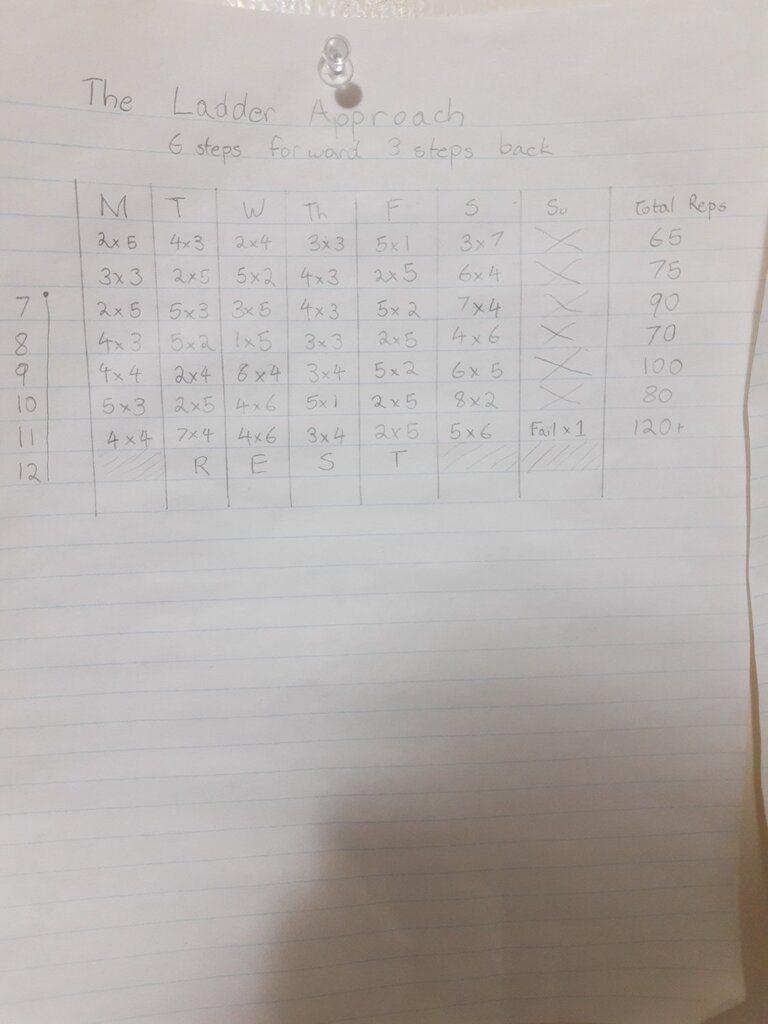 The Ladder Approach
6 steps forward 3 steps back
M T W Th F S Su Total Reps
2x5 4x3 2x4 3x3 5x1 3x7 X 65
3x3 2x5 5x2 4x3 2x5 6x4 X 75
7 2x5 5x3 3x5 4x3 5x2 7x4 X 90
8 4x3 5x2 1x5 3x3 2x5 4x6 X 70
9 4x4 2x4 8x4 3x4 5x2 6x5 X 100
10 5x3 2x5 4x6 5x1 2x5 8x2 X 80
11 4x4 7x4 4x6 3x4 2x5 5x6 Fail x 1 120+
12 R E S T